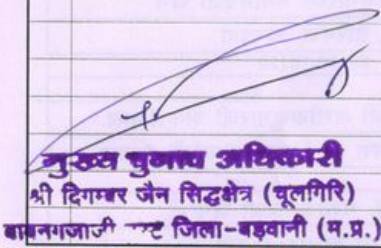 मुख्य चुनाव अधिकारी
श्री दिगम्बर जैन सिद्धक्षेत्र (चूलगिरि)
बावनगजाजी जिला-बड़वानी (म.प्र.)